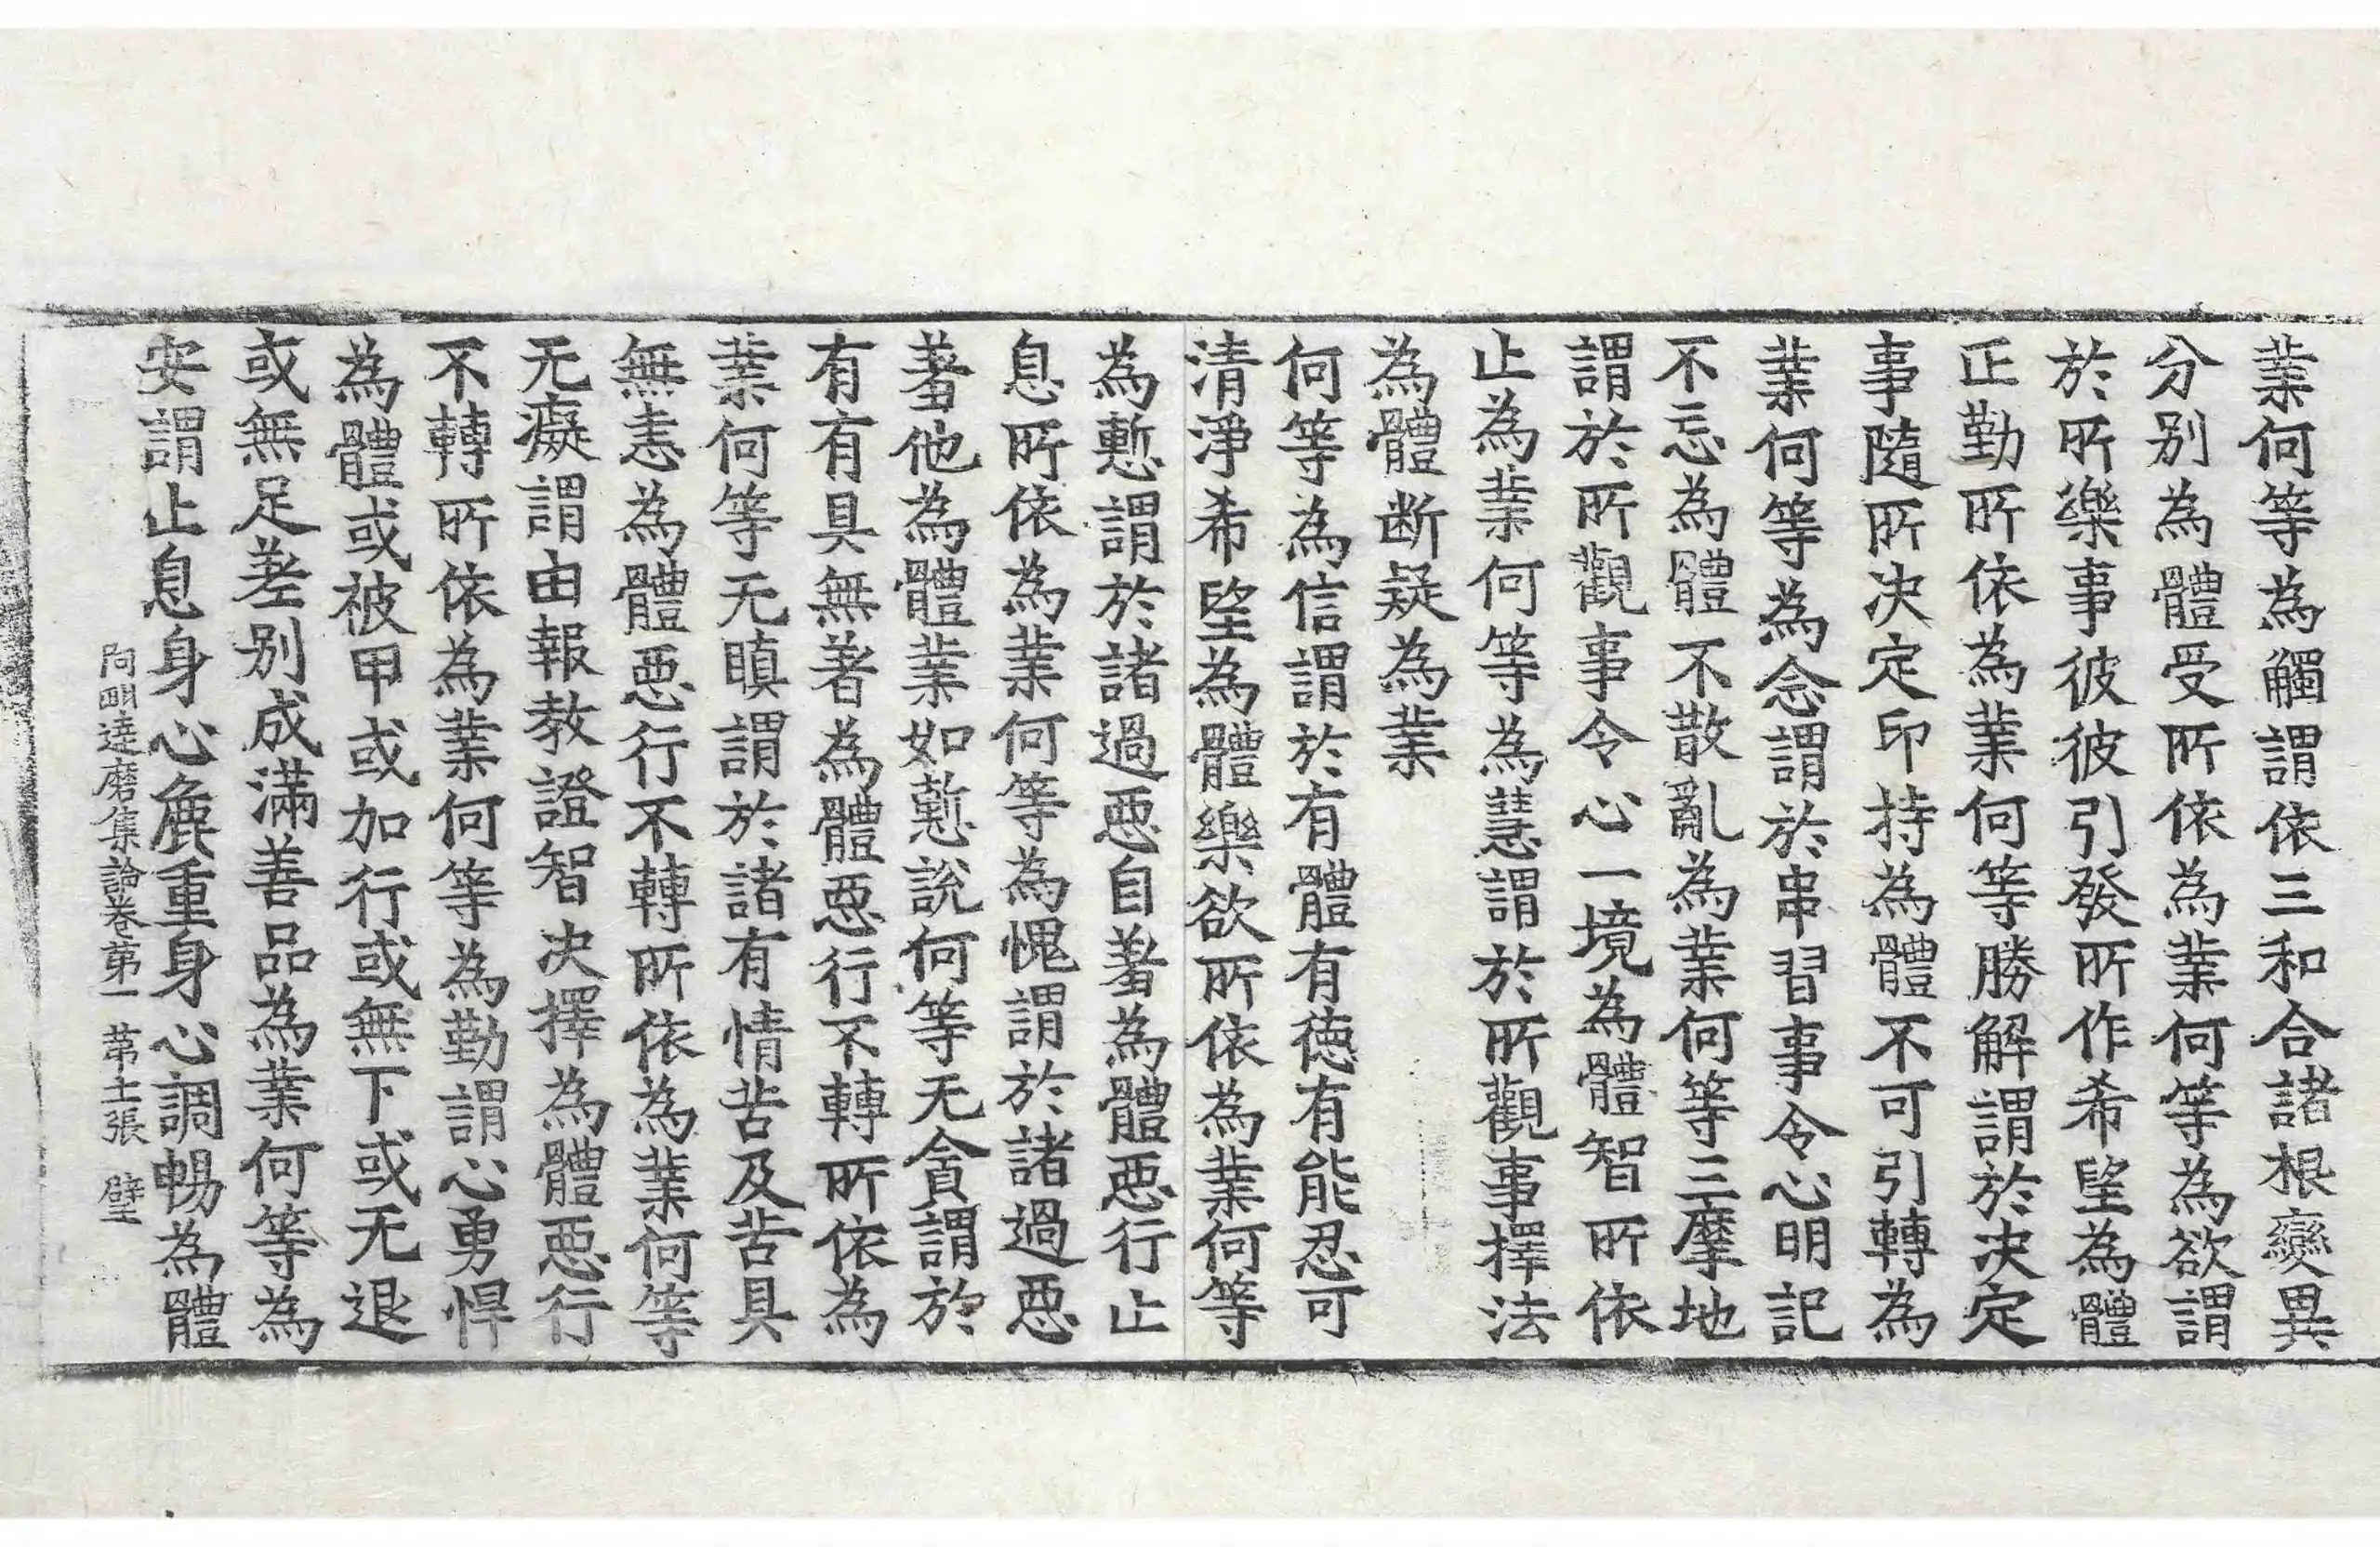 業何等為觸謂依三和合諸根變異
分别為體受所依為業何等為欲謂
於所樂事彼彼引發所作希望為體
正勤所依為業何等勝解謂於决定
事隨所决定印持為體不可引轉為
業何等為念謂於串習事令心明記
不忘為體不散亂為業何等三摩地
謂於所觀事令心一境為體智所依
止為業何等為慧謂於所觀事擇法
為體断疑為業
何等為信謂於有體有德有能忍可
清淨希望為體樂欲所依為業何等
為慙謂於諸過惡自羞為體惡行止
息所依為業何等為愧謂於諸過惡
羞他為體業如慙說何等无貪謂於
有有具無著為體惡行不轉所依為
業何等无瞋謂於諸有情苦及苦具
無恚為體惡行不轉所依為業何等
无癡謂由報教證智决擇為體惡行
不轉所依為業何等為勤謂心勇悍
為體或被甲或加行或無下或无退
或無足差别成滿善品為業何等為
安謂止息身心麁重身心調暢為體
阿毗達磨集論卷第一 第十張 壁